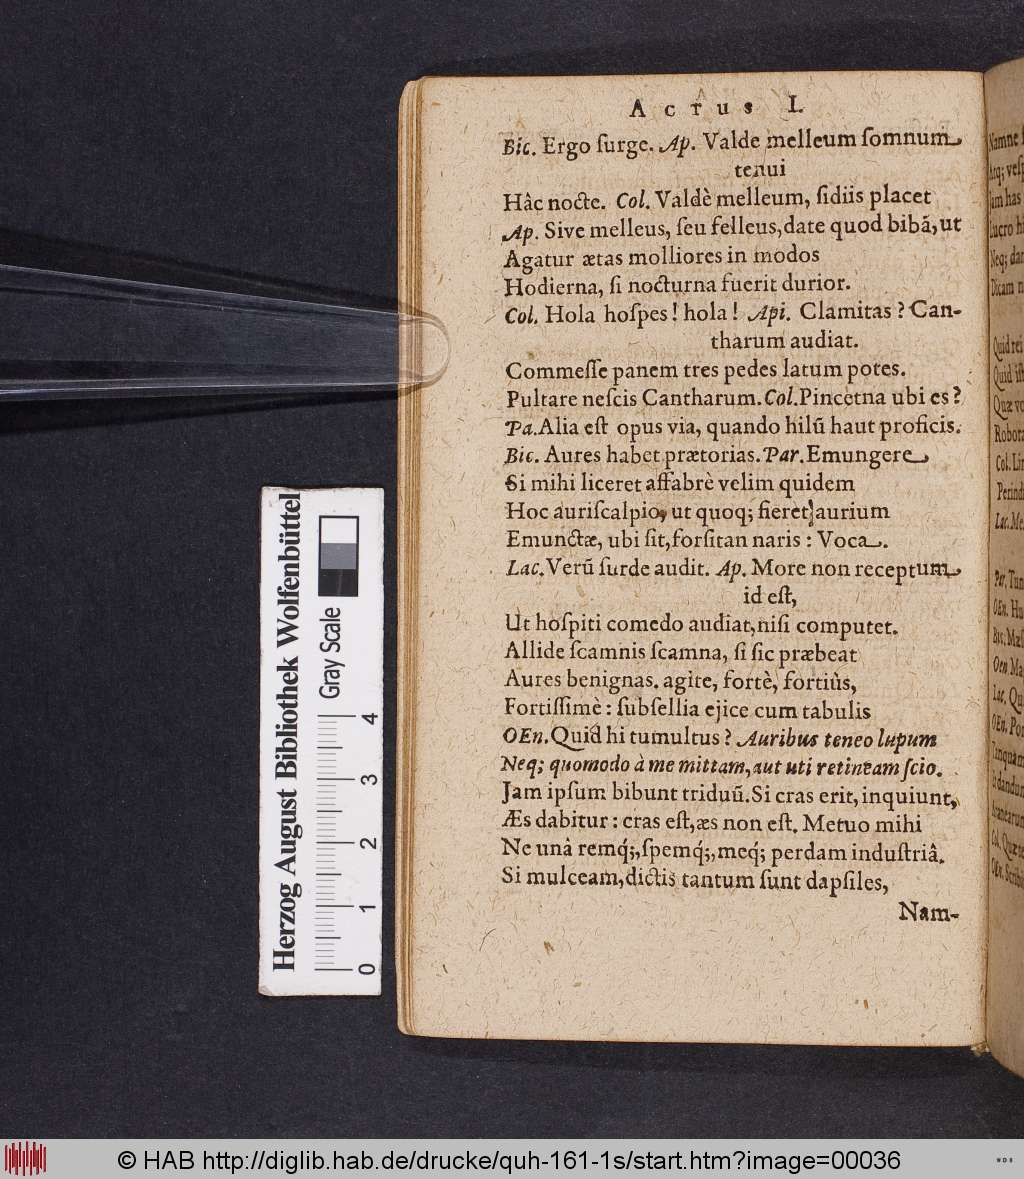 Actus I.
Bic. Ergo ſurge. Ap. Valde melleum ſomnum
tenui
Hâc nocte. Col. Valdè melleum, ſidiis placet
Ap. Sive melleus, ſeu felleus, date quod bibã, ut
Agatur ætas molliores in modos
Hodierna, ſi nocturna fuerit durior.
Col. Hola hoſpes! hola! Api. Clamitas? Can-
tharum audiat.
Commeſſe panem tres pedes latum potes.
Pultare neſcis Cantharum. Col. Pincetna ubi es?
Pa. Alia eſt opus via, quando hilũ haut proficis.
Bic. Aures habet prætorias. Par. Emungere
Si mihi liceret affabrè velim quidem
Hoc auriſcalpio, ut quoq; fieret aurium
Emunctæ, ubi ſit, forſitan naris: Voca.
Lac. Verũ ſurde audit. Ap. More non receptum
id eſt,
Ut hoſpiti comedo audiat, niſi computet.
Allide ſcamnis ſcamna, ſi ſic præbeat
Aures benignas. agite, fortè, fortiùs,
Fortiſſimè: ſubſellia ejice cum tabulis
OEn. Quid hi tumultus? Auribus teneo lupum
Neq; quomodo à me mittam, aut uti retineam ſcio.
Jam ipſum bibunt triduũ. Si cras erit, inquiunt,
Æs dabitur: cras eſt, æs non eſt. Metuo mihi
Ne unà remq́;, ſpemq́;, meq́; perdam induſtriâ.
Si mulceam, dictis tantum ſunt dapſiles,
Nam-
Herzog August Bibliothek Wolfenbüttel
Gray Scale
0 1 2 3 4
© HAB http://diglib.hab.de/drucke/quh-161-1s/start.htm?image=00036